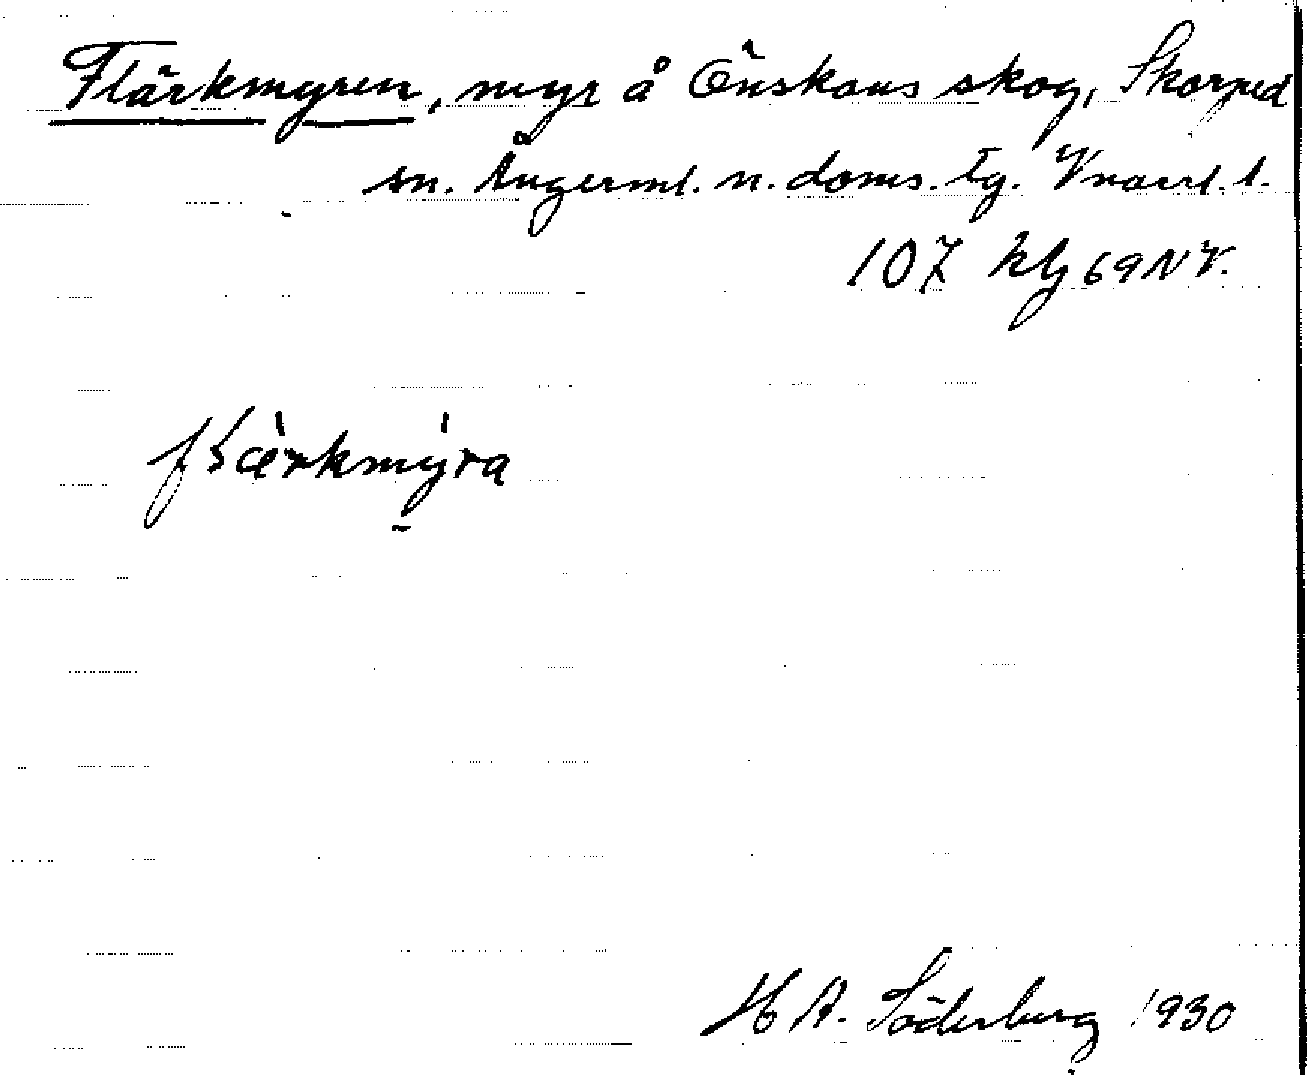 Flärkmyren, myr å Önskans skog, Skorped
sn. Ångerml. n. doms. tg. Vnorrl. l.
107 Klg 69 NV.
flærkmýra
H A. Söderberg 1930